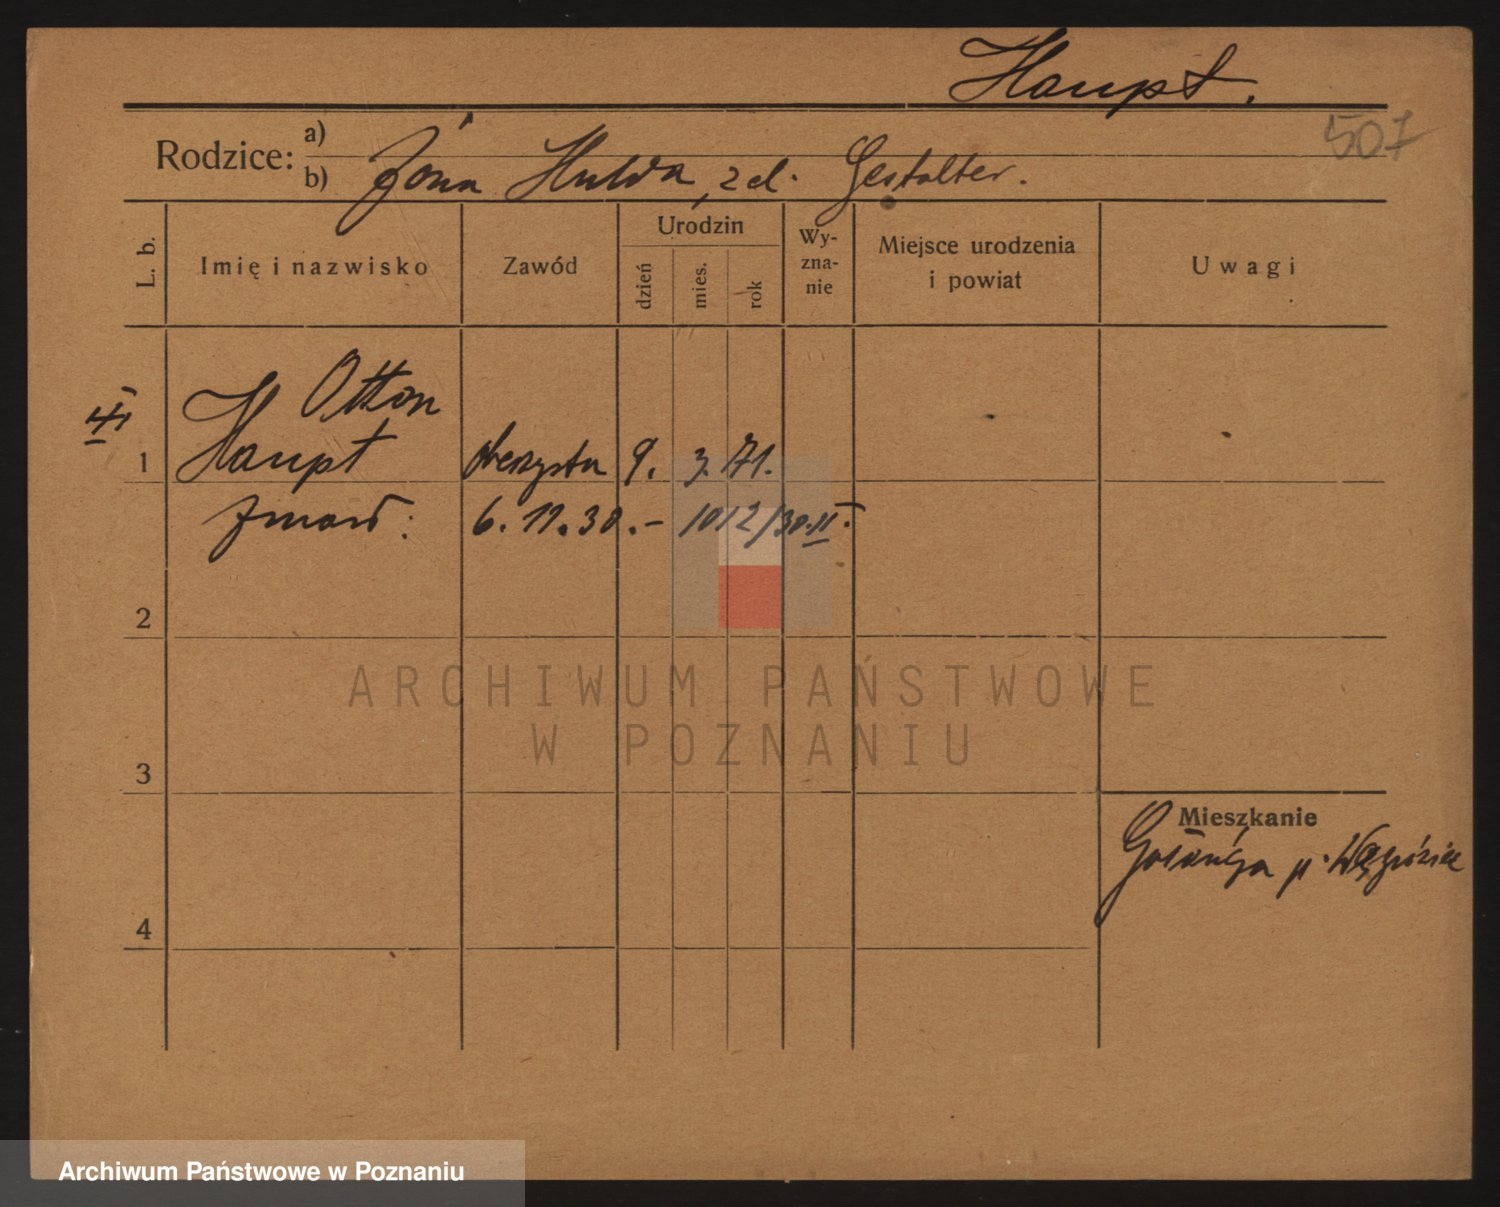 Haupt.
507
Rodzice: a)
b) Żona Hulda, zd. Gestalter.
L. b.
Imię i nazwisko
Zawód
Urodzin
dzień
mies.
rok
Wy-
zna-
nie
Miejsce urodzenia
i powiat
Uwagi
Otton
1 Haupt 9. 3. 71.
zmarł: 6. 11. 30. - 1012/30. II.
2
3
4
Mieszkanie
Gołańcza p.
ARCHIWUM PAŃSTWOWE
W POZNANIU
Archiwum Państwowe w Poznaniu